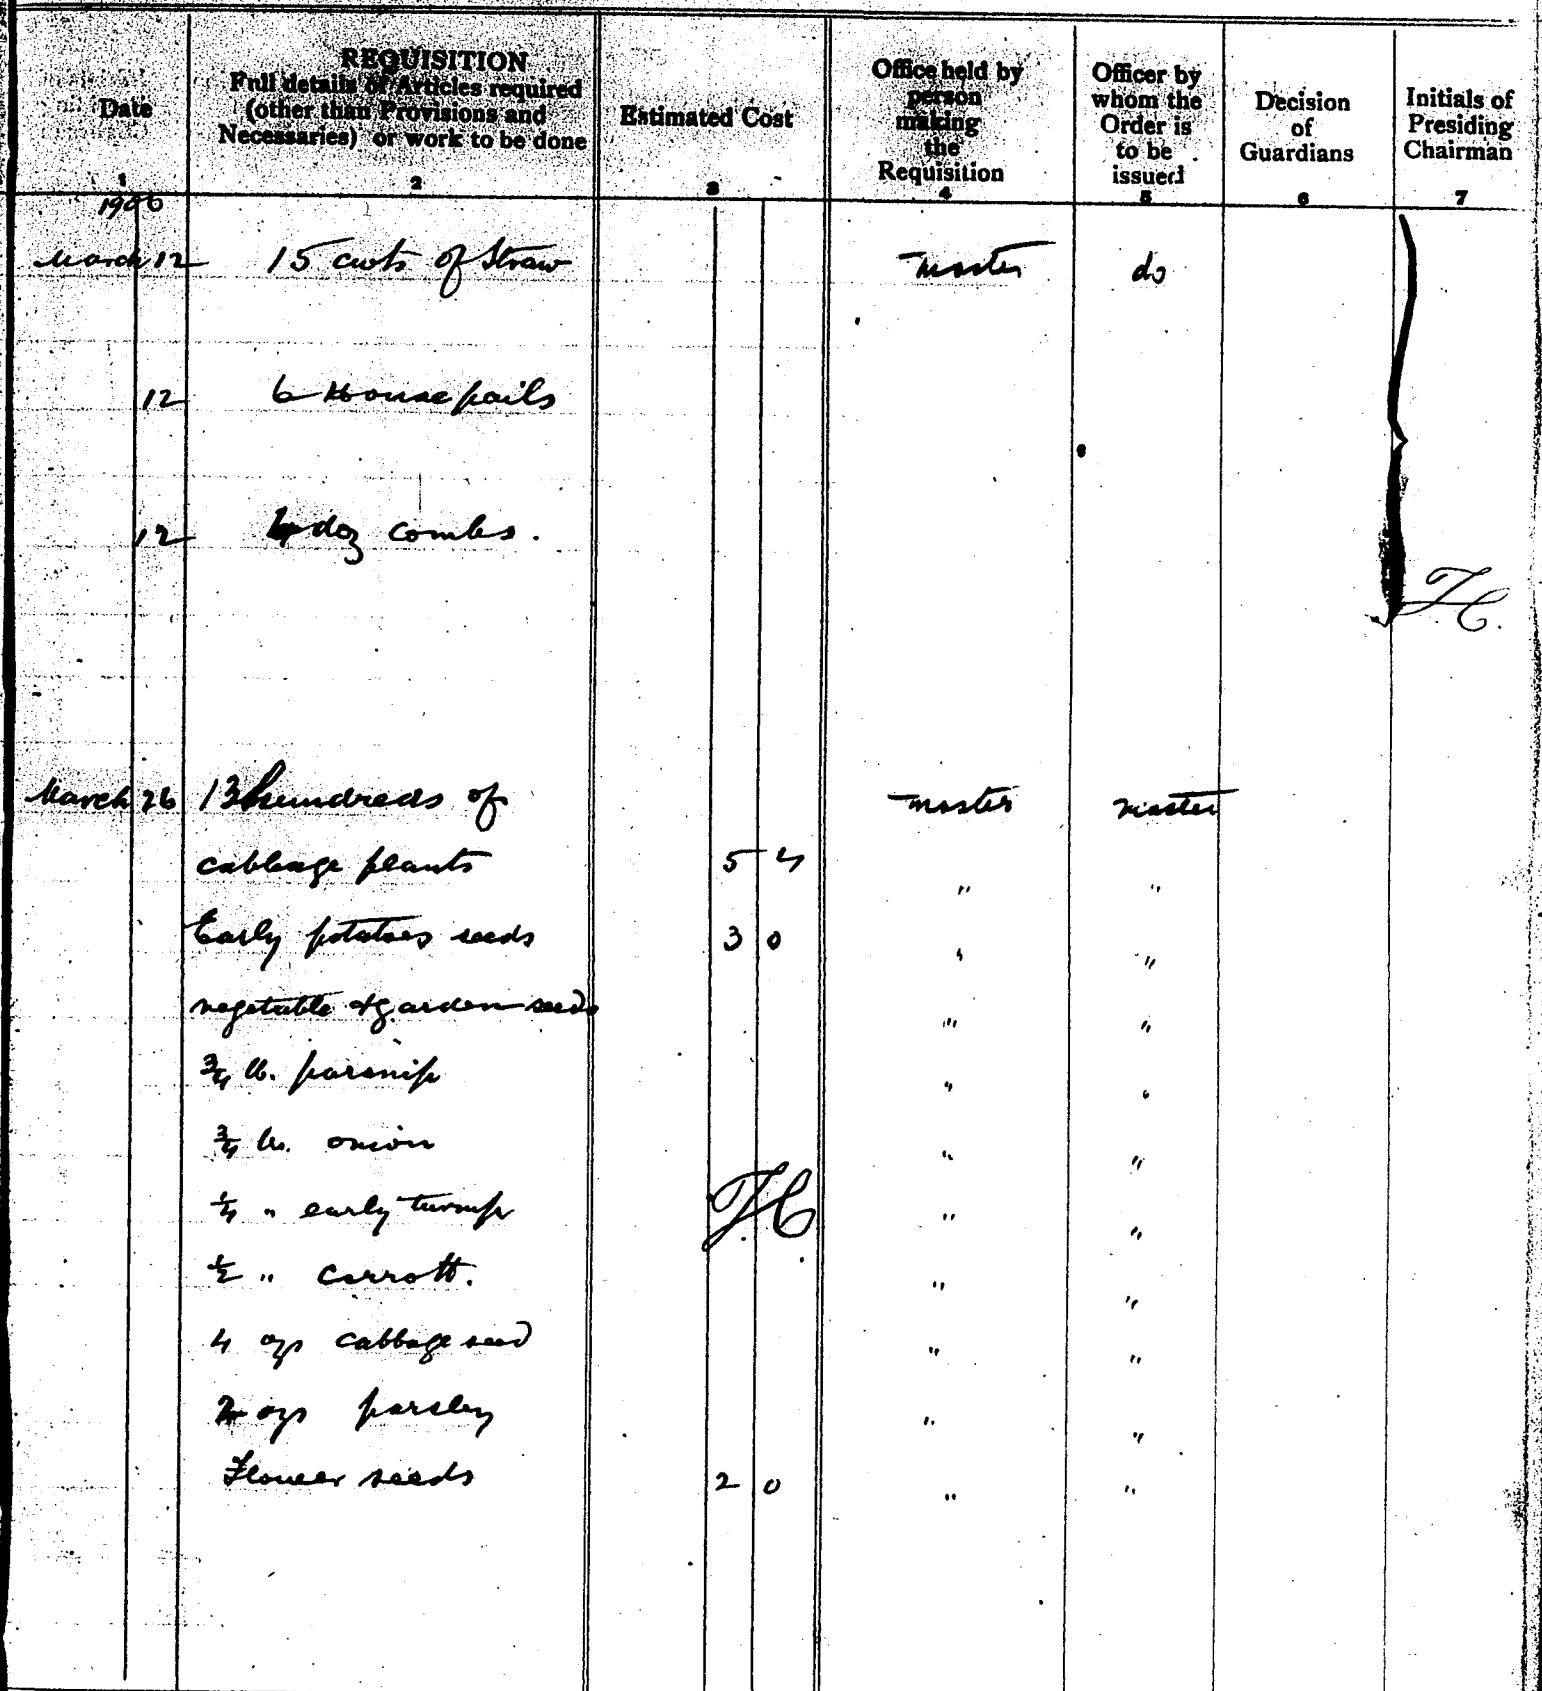 Date
1
REQUISITION
Full details of Articles required
(other than Provisions and
Necessaries) or work to be done
2
Estimated Cost
3
Office held by
person
making
the
Requisition
4
Officer by
whom the
Order is
to be
issued
5
Decision
of
Guardians
6
Initials of
Presiding
Chairman
7
1906
March 12 15 cwts of Straw Master do
12 6 House pails
12 doz combs.
March 26 13 hundreds of Master Master
cabbage plants 5 4 " "
Early potatoes seeds 3 0 " "
vegetable & garden seeds " "
3/4 lb. parsnip " "
3/4 lb. onion " "
1/4 " early turnip " "
1/2 " Carrott. " "
4 ozs cabbage seed " "
2 ozs parsley " "
Flower seeds 2 0 " "